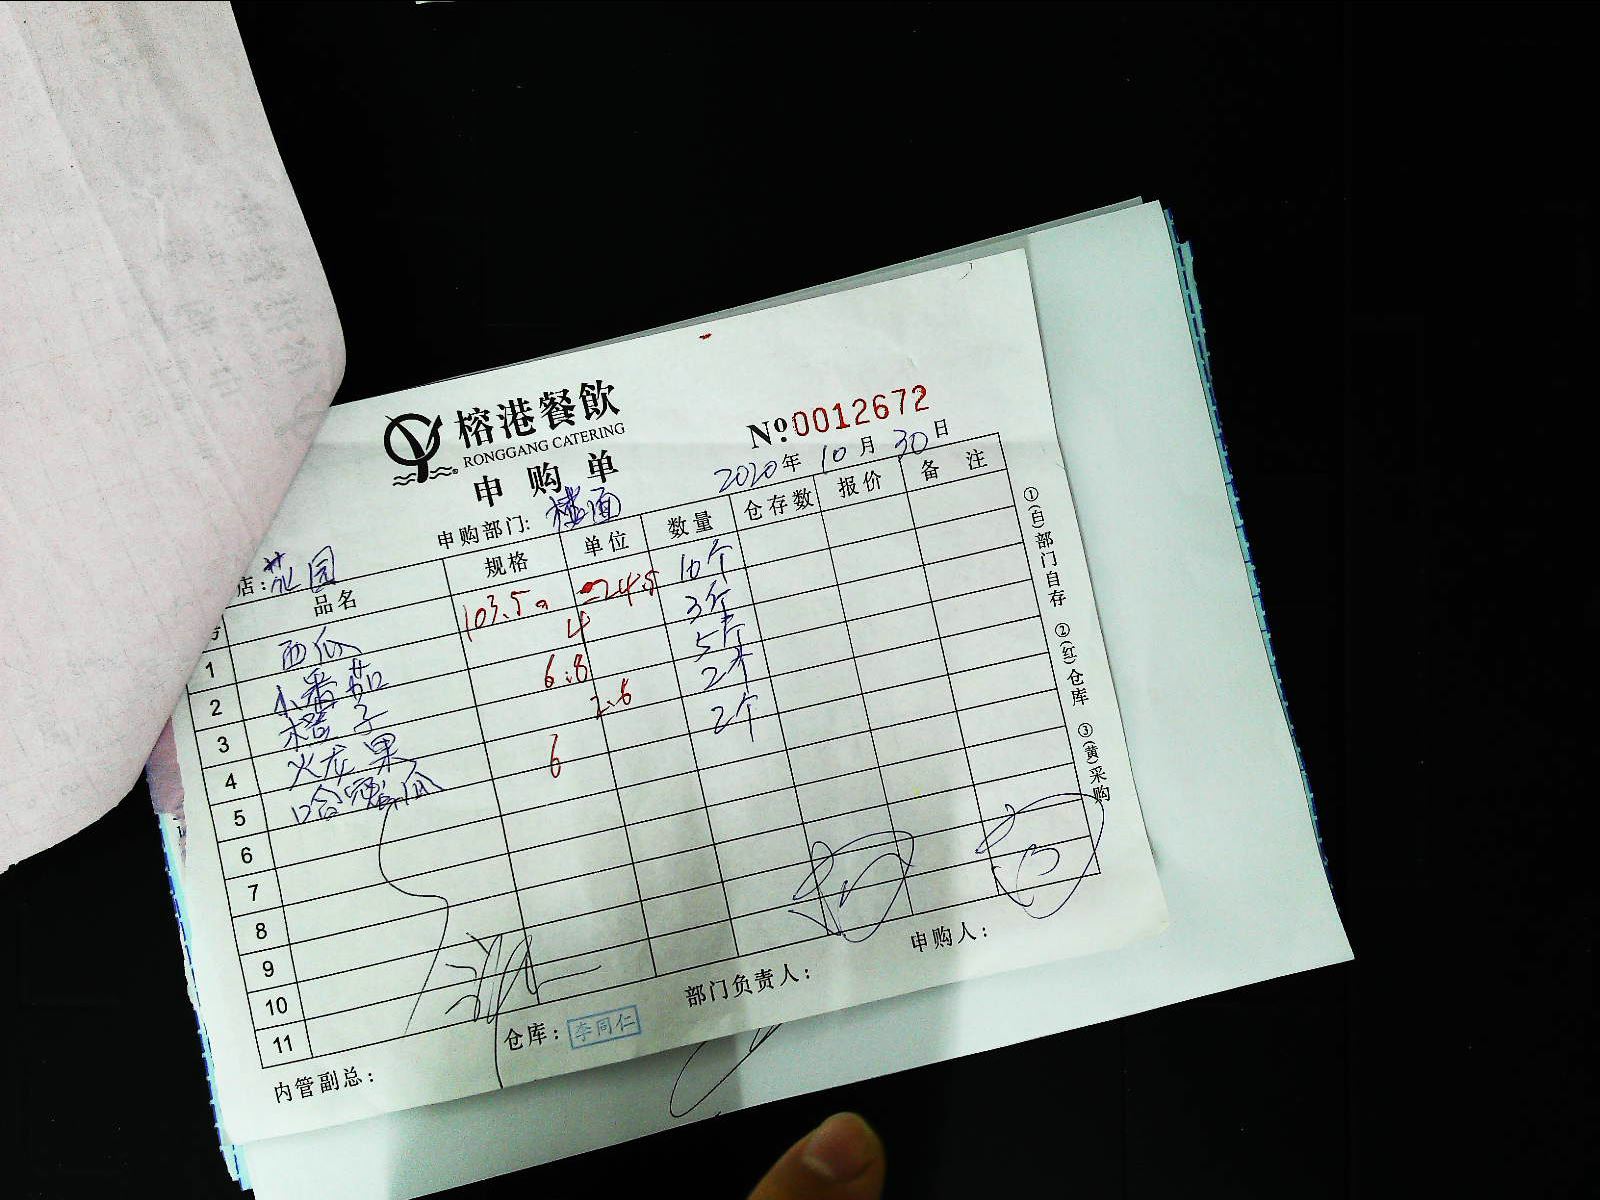 榕港餐飲
RONGGANG CATERING
申购单
№0012672
申购部门: 楼面
2020年 10月 30日
店: 花园
品名 规格 单位 数量 仓存数 报价 备注
1 西瓜 103.5 24.5 10个
2 小番茄 4 3个
3 橙子 6.8 5个
4 火龙果 2.6 2个
5 哈密瓜 6 2个
6
7
8
9
10
11
内管副总:
仓库: 李同仁
部门负责人:
申购人:
①(白)部门自存 ②(红)仓库 ③(黄)采购